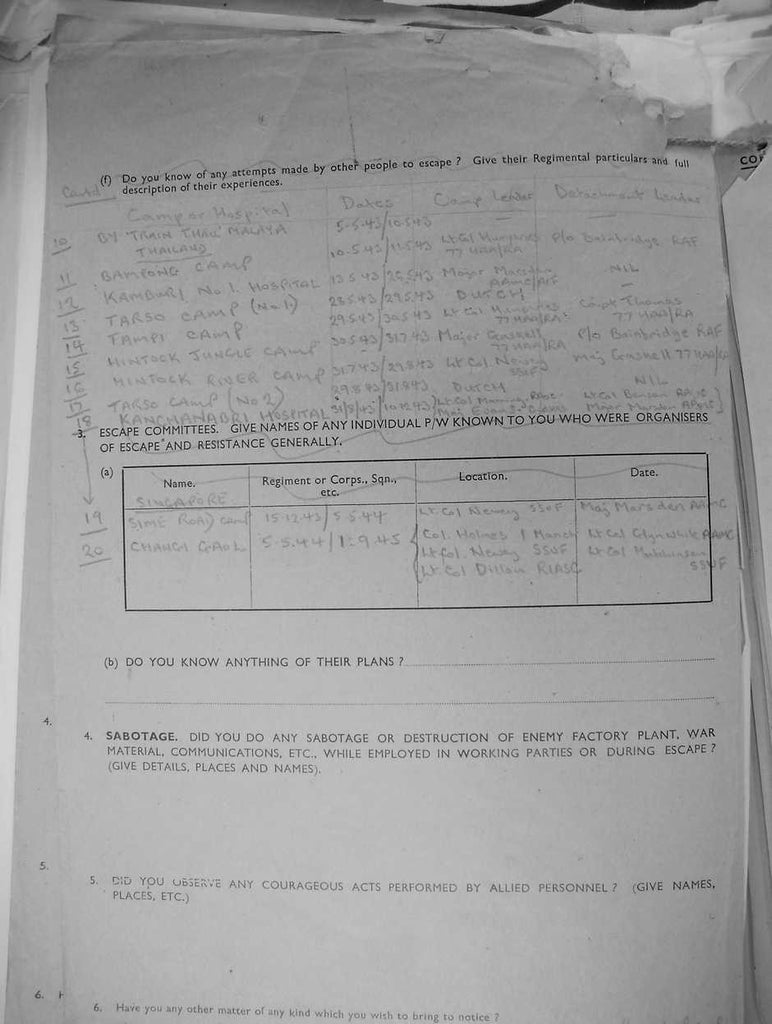 (f) Do you know of any attempts made by other people to escape ? Give their Regimental particulars and full
description of their experiences.
Cont'd
Camp or Hospital Dates Camp Leader Detachment Leader
10 BY TRAIN THRO' MALAYA 5-5-43/10.5.43 —
THAILAND
11 BAMPONG CAMP 10.5.43/11.5.43 Lt Col Humphries P/o Bainbridge RAF
77 HAA/RA
12 KAMBURI No 1. HOSPITAL 13.5.43/28.5.43 Major Marsden NIL
13 TARSO CAMP (No 1.) 28.5.43/29.5.43 DUTCH
14 TAMPI CAMP 29.5.43/30.5.43 Lt Col Humphries Capt Thomas
77 HAA/RA 77 HAA/RA
15 HINTOCK JUNGLE CAMP 30.5.43/31.7.43 Major Gaskell P/o Bainbridge RAF
77 HAA/RA
16 HINTOCK RIVER CAMP 31.7.43/29.8.43 Lt Col. Newey Maj Gaskell 77 HAA/RA
SSVF
17 TARSO CAMP (No 2) 29.8.43/31.8.43 DUTCH NIL
18 KANCHANABRI HOSPITAL 31/8/43/10.12.43 Lt Col
3. ESCAPE COMMITTEES. GIVE NAMES OF ANY INDIVIDUAL P/W KNOWN TO YOU WHO WERE ORGANISERS
OF ESCAPE AND RESISTANCE GENERALLY.
(a) Name. Regiment or Corps., Sqn., etc. Location. Date.
SINGAPORE
19 SIME ROAD Camp 15-12.43/5-5-44 Lt Col Newey SSVF Maj Marsden AAMC
20 CHANGI GAOL 5-5.44/1.9.45 Col. Holmes 1 Manch Lt Col Glyn White AAMC
Lt Col. Newey SSVF Lt Col Hutchinson
Lt Col Dillon RIASC SSVF
(b) DO YOU KNOW ANYTHING OF THEIR PLANS ?
4.
4. SABOTAGE. DID YOU DO ANY SABOTAGE OR DESTRUCTION OF ENEMY FACTORY PLANT, WAR
MATERIAL, COMMUNICATIONS, ETC., WHILE EMPLOYED IN WORKING PARTIES OR DURING ESCAPE ?
(GIVE DETAILS, PLACES AND NAMES).
5.
5. DID YOU OBSERVE ANY COURAGEOUS ACTS PERFORMED BY ALLIED PERSONNEL ? (GIVE NAMES,
PLACES, ETC.)
6. H
6. Have you any other matter of any kind which you wish to bring to notice ?